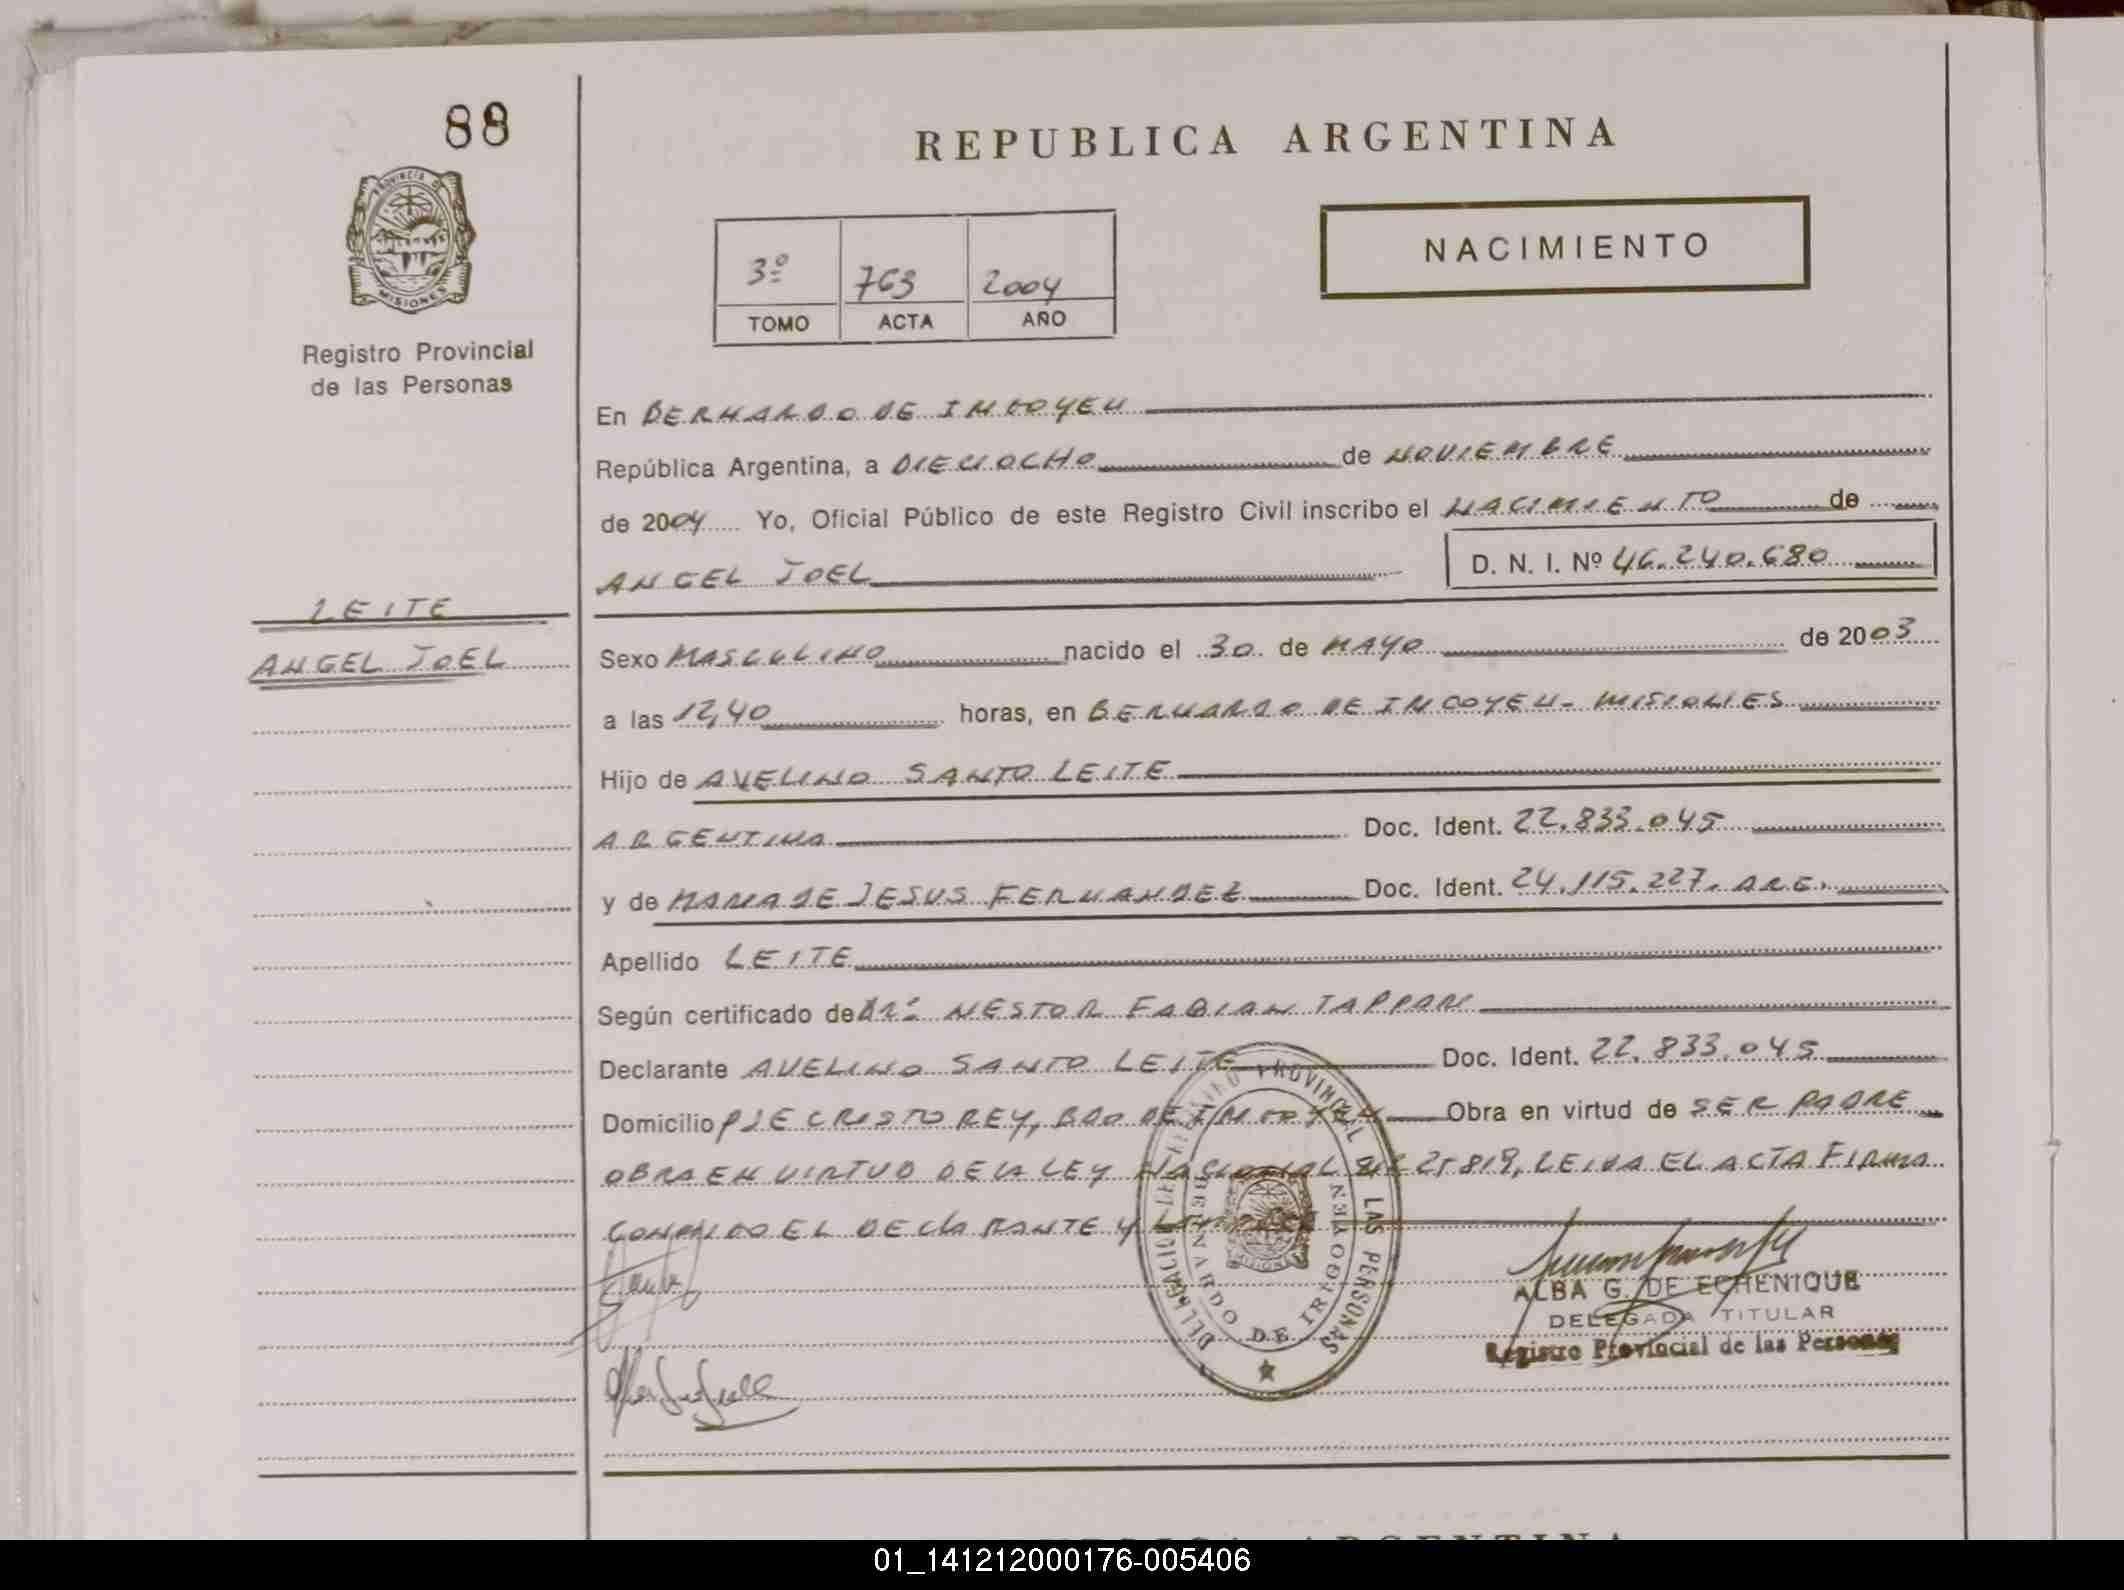 88
REPUBLICA ARGENTINA
PROVINCIA DE
MISIONES
NACIMIENTO
3º 763 2004
TOMO ACTA AÑO
Registro Provincial
de las Personas
En BERNARDO DE IRIGOYEN
República Argentina, a DIECIOCHO de NOVIEMBRE
de 2004 Yo, Oficial Público de este Registro Civil inscribo el NACIMIENTO de
ANGEL JOEL D. N. I. Nº 46.240.680
LEITE
ANGEL JOEL
Sexo MASCULINO nacido el 30 de MAYO de 2003
a las 12,40 horas, en BERNARDO DE IRIGOYEN - MISIONES
Hijo de AVELINO SANTO LEITE
ARGENTINA Doc. Ident. 22.833.045
y de MARIA DE JESUS FERNANDEZ Doc. Ident. 24.115.227. ARG.
Apellido LEITE
Según certificado de Dr. NESTOR FABIAN TAPPARI
Declarante AVELINO SANTO LEITE Doc. Ident. 22.833.045
Domicilio PJE CRISTO REY, BDO DE IRIGOYEN Obra en virtud de SER PADRE
OBRA EN VIRTUD DE LA LEY NACIONAL 25819, LEIDA EL ACTA FIRMA
CONMIGO EL DECLARANTE Y
DELEGACION DEL REGISTRO PROVINCIAL DE LAS PERSONAS
BERNARDO DE IRIGOYEN
ALBA G. DE ECHENIQUE
DELEGADA TITULAR
Registro Provincial de las Personas
REPUBLICA ARGENTINA
01_141212000176-005406